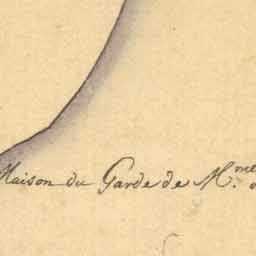 Maison du Garde de M.me